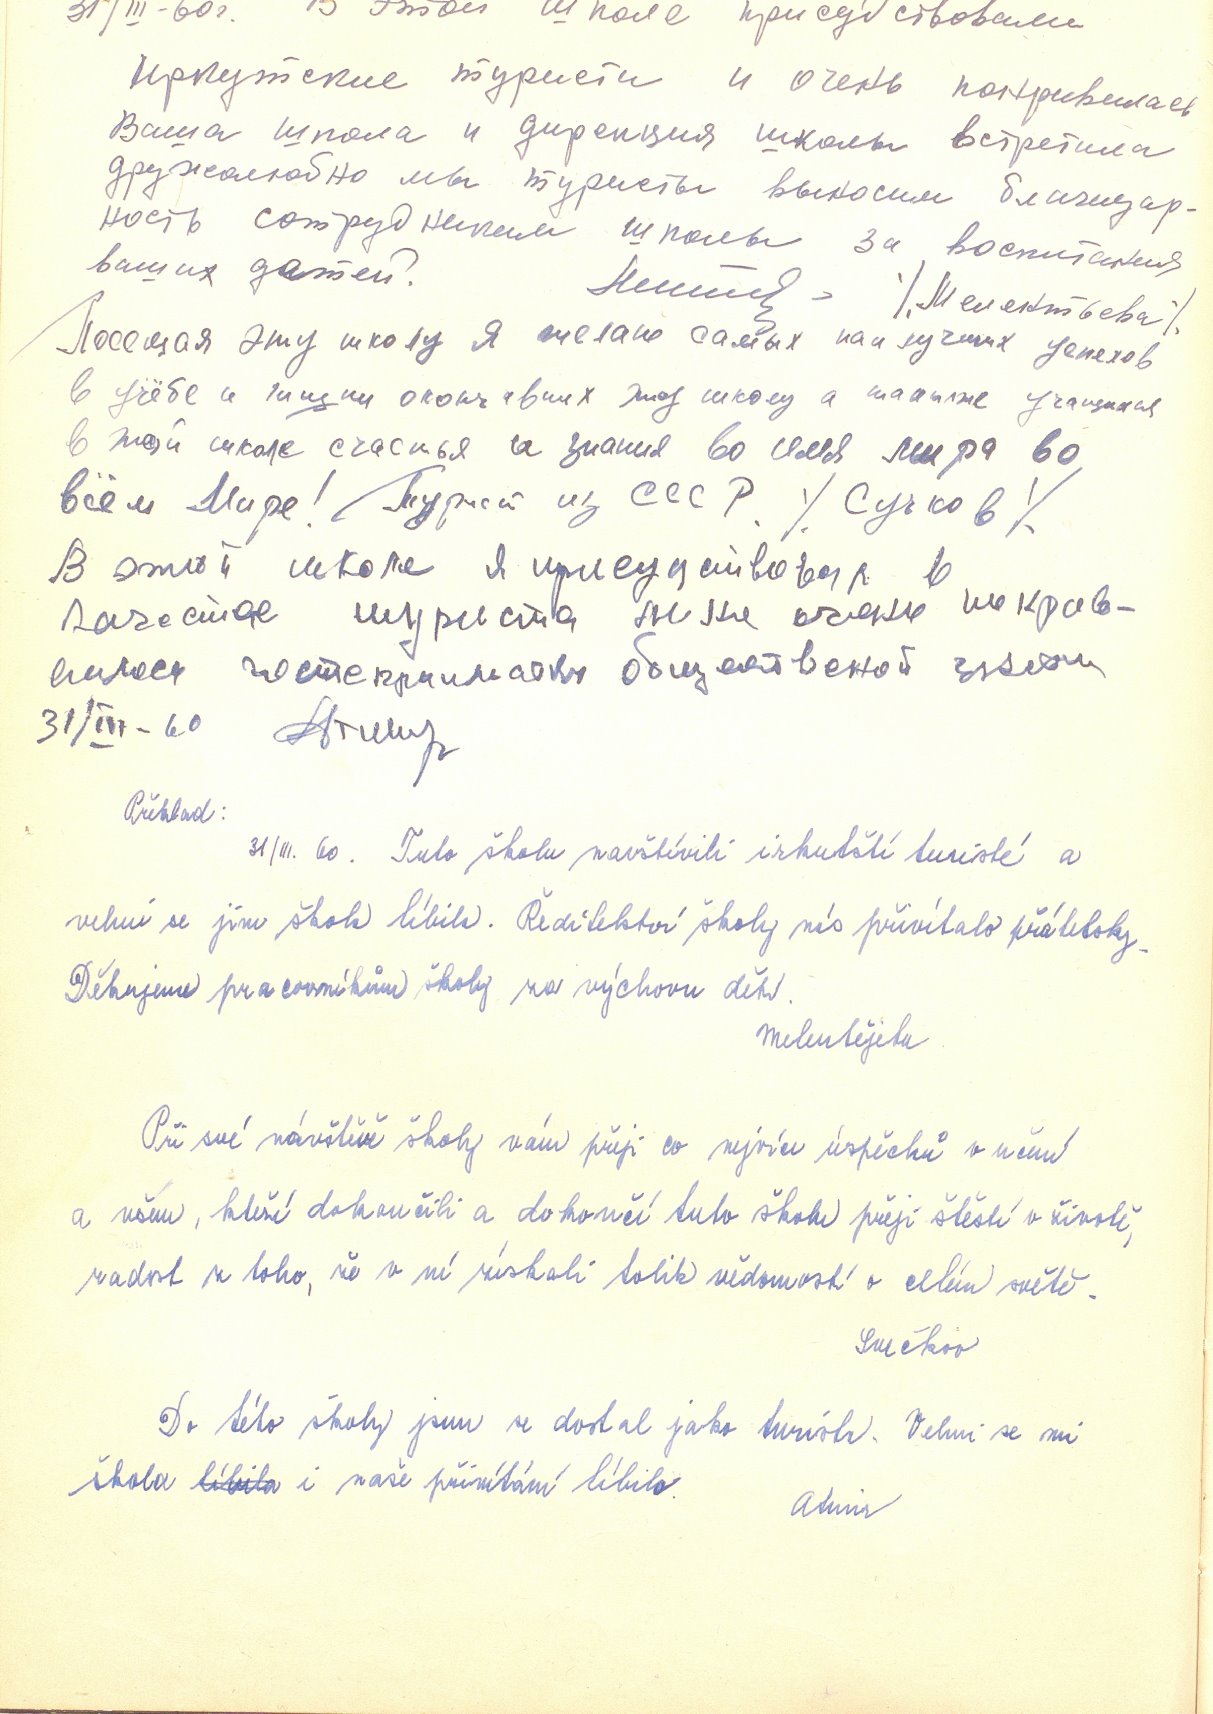 31/III-60г. В этой школе присудствовали
Иркутские туристы и очень понравилась
Ваша школа и дирекция школы встретила
дружелюбно мы туристы выносим благодар-
ность сотрудникам школы за воспитания
ваших детей.
/Мелентьева/.
Посещая эту школу я желаю самых наилучших успехов
в учёбе и жизни окончавших эту школу а также учащимся
в этой школе счастья и знания во имя мира во
всём Мире! Турист из СССР. /Сучков/.
В этой школе я присудствовал в
качестве туриста мне очень понрав-
илось гостеприимство общественной
31/III-60
Překlad:
31/III. 60. Tuto školu navštívili irkutští turisté a
velmi se jim škola líbila. Ředitelství školy nás přivítalo přátelsky.
Děkujeme pracovníkům školy za výchovu dětí.
Při své návštěvě školy vám přeji co nejvíce úspěchů v učení
a všem, kteří dokončili a dokončí tuto školu přeji štěstí v životě,
radost z toho, že v ní získali tolik vědomostí o celém světě.
Sučkov
Do této školy jsem se dostal jako turista. Velmi se mi
škola líbila i naše přivítání líbilo.